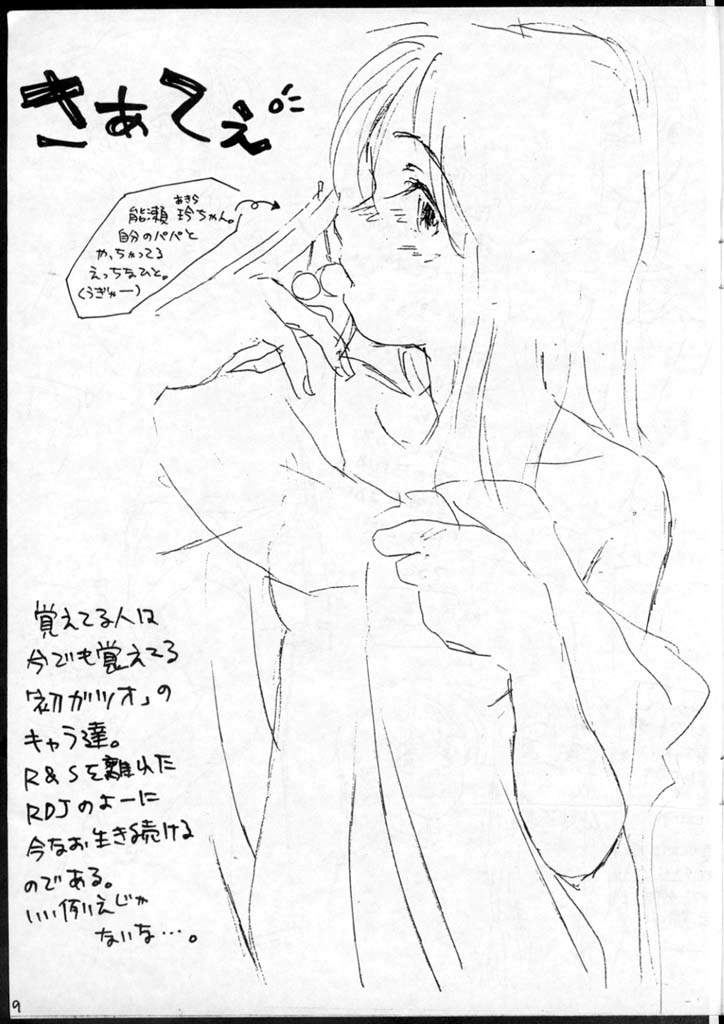 さぁてぇ
能瀬 玲ちゃん。
あきら
自分のパパと
やっちゃってる
えっちなひと。
(うぎゅー)
覚えてる人は
今でも覚えてる
「初ガツオ」の
キャラ達。
R&Sを離れた
RDJのよーに
今なお生き続ける
のである。
いい例えじゃ
ないな…。
9